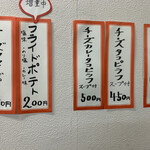 チーズタコピラフ
スープ付
450円
チーズカレータコピラフ
スープ付
500円
増量中
フライドポテト
200円